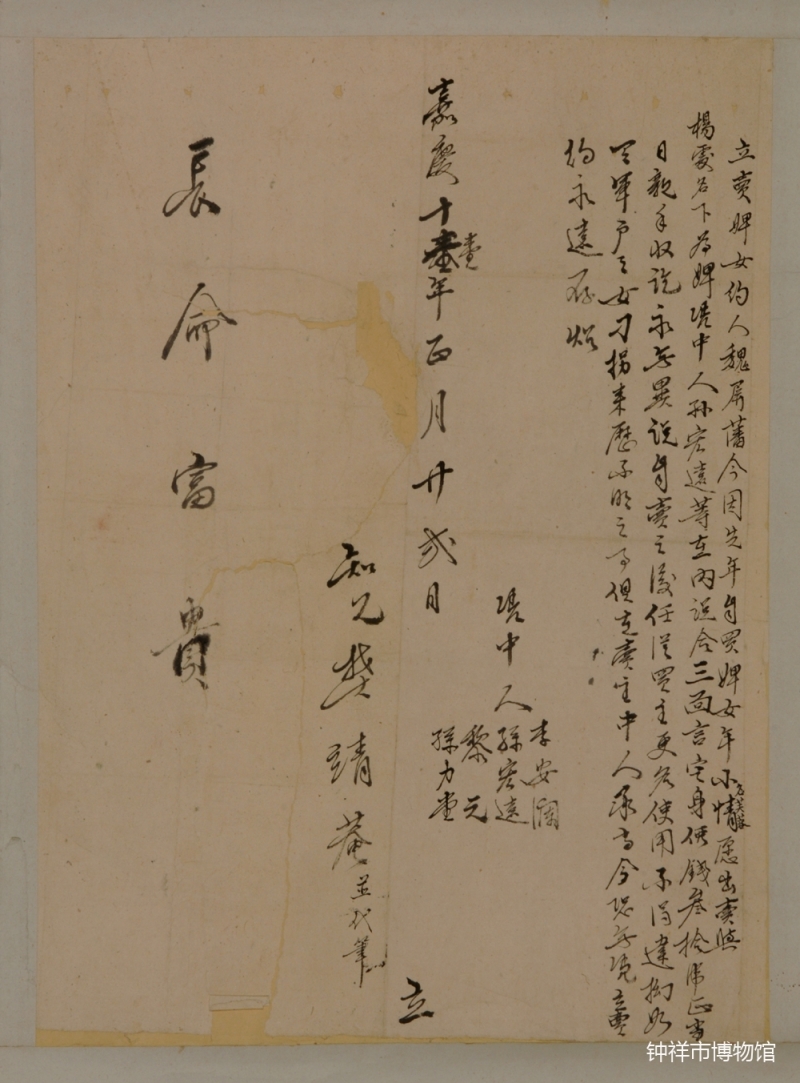 立賣婢女約人魏屏藩今因先年自買婢女年小情愿出賣與
楊處名下為婢憑中人孫宏遠等在內說合三面言定身價錢叁拾串正當
日親手收訖永無異說自賣之後任從買主更名使用不得違拗如
軍戶之女刁拐來歷不明之事俱在賣主中人承當今恐無憑立賣
約永遠存照
憑中人
李安瀾
孫宏遠
黎元
孫力堂
嘉慶十壹年正月廿弍日
立
知見樊靖菴並代筆
長命富貴
钟祥市博物馆